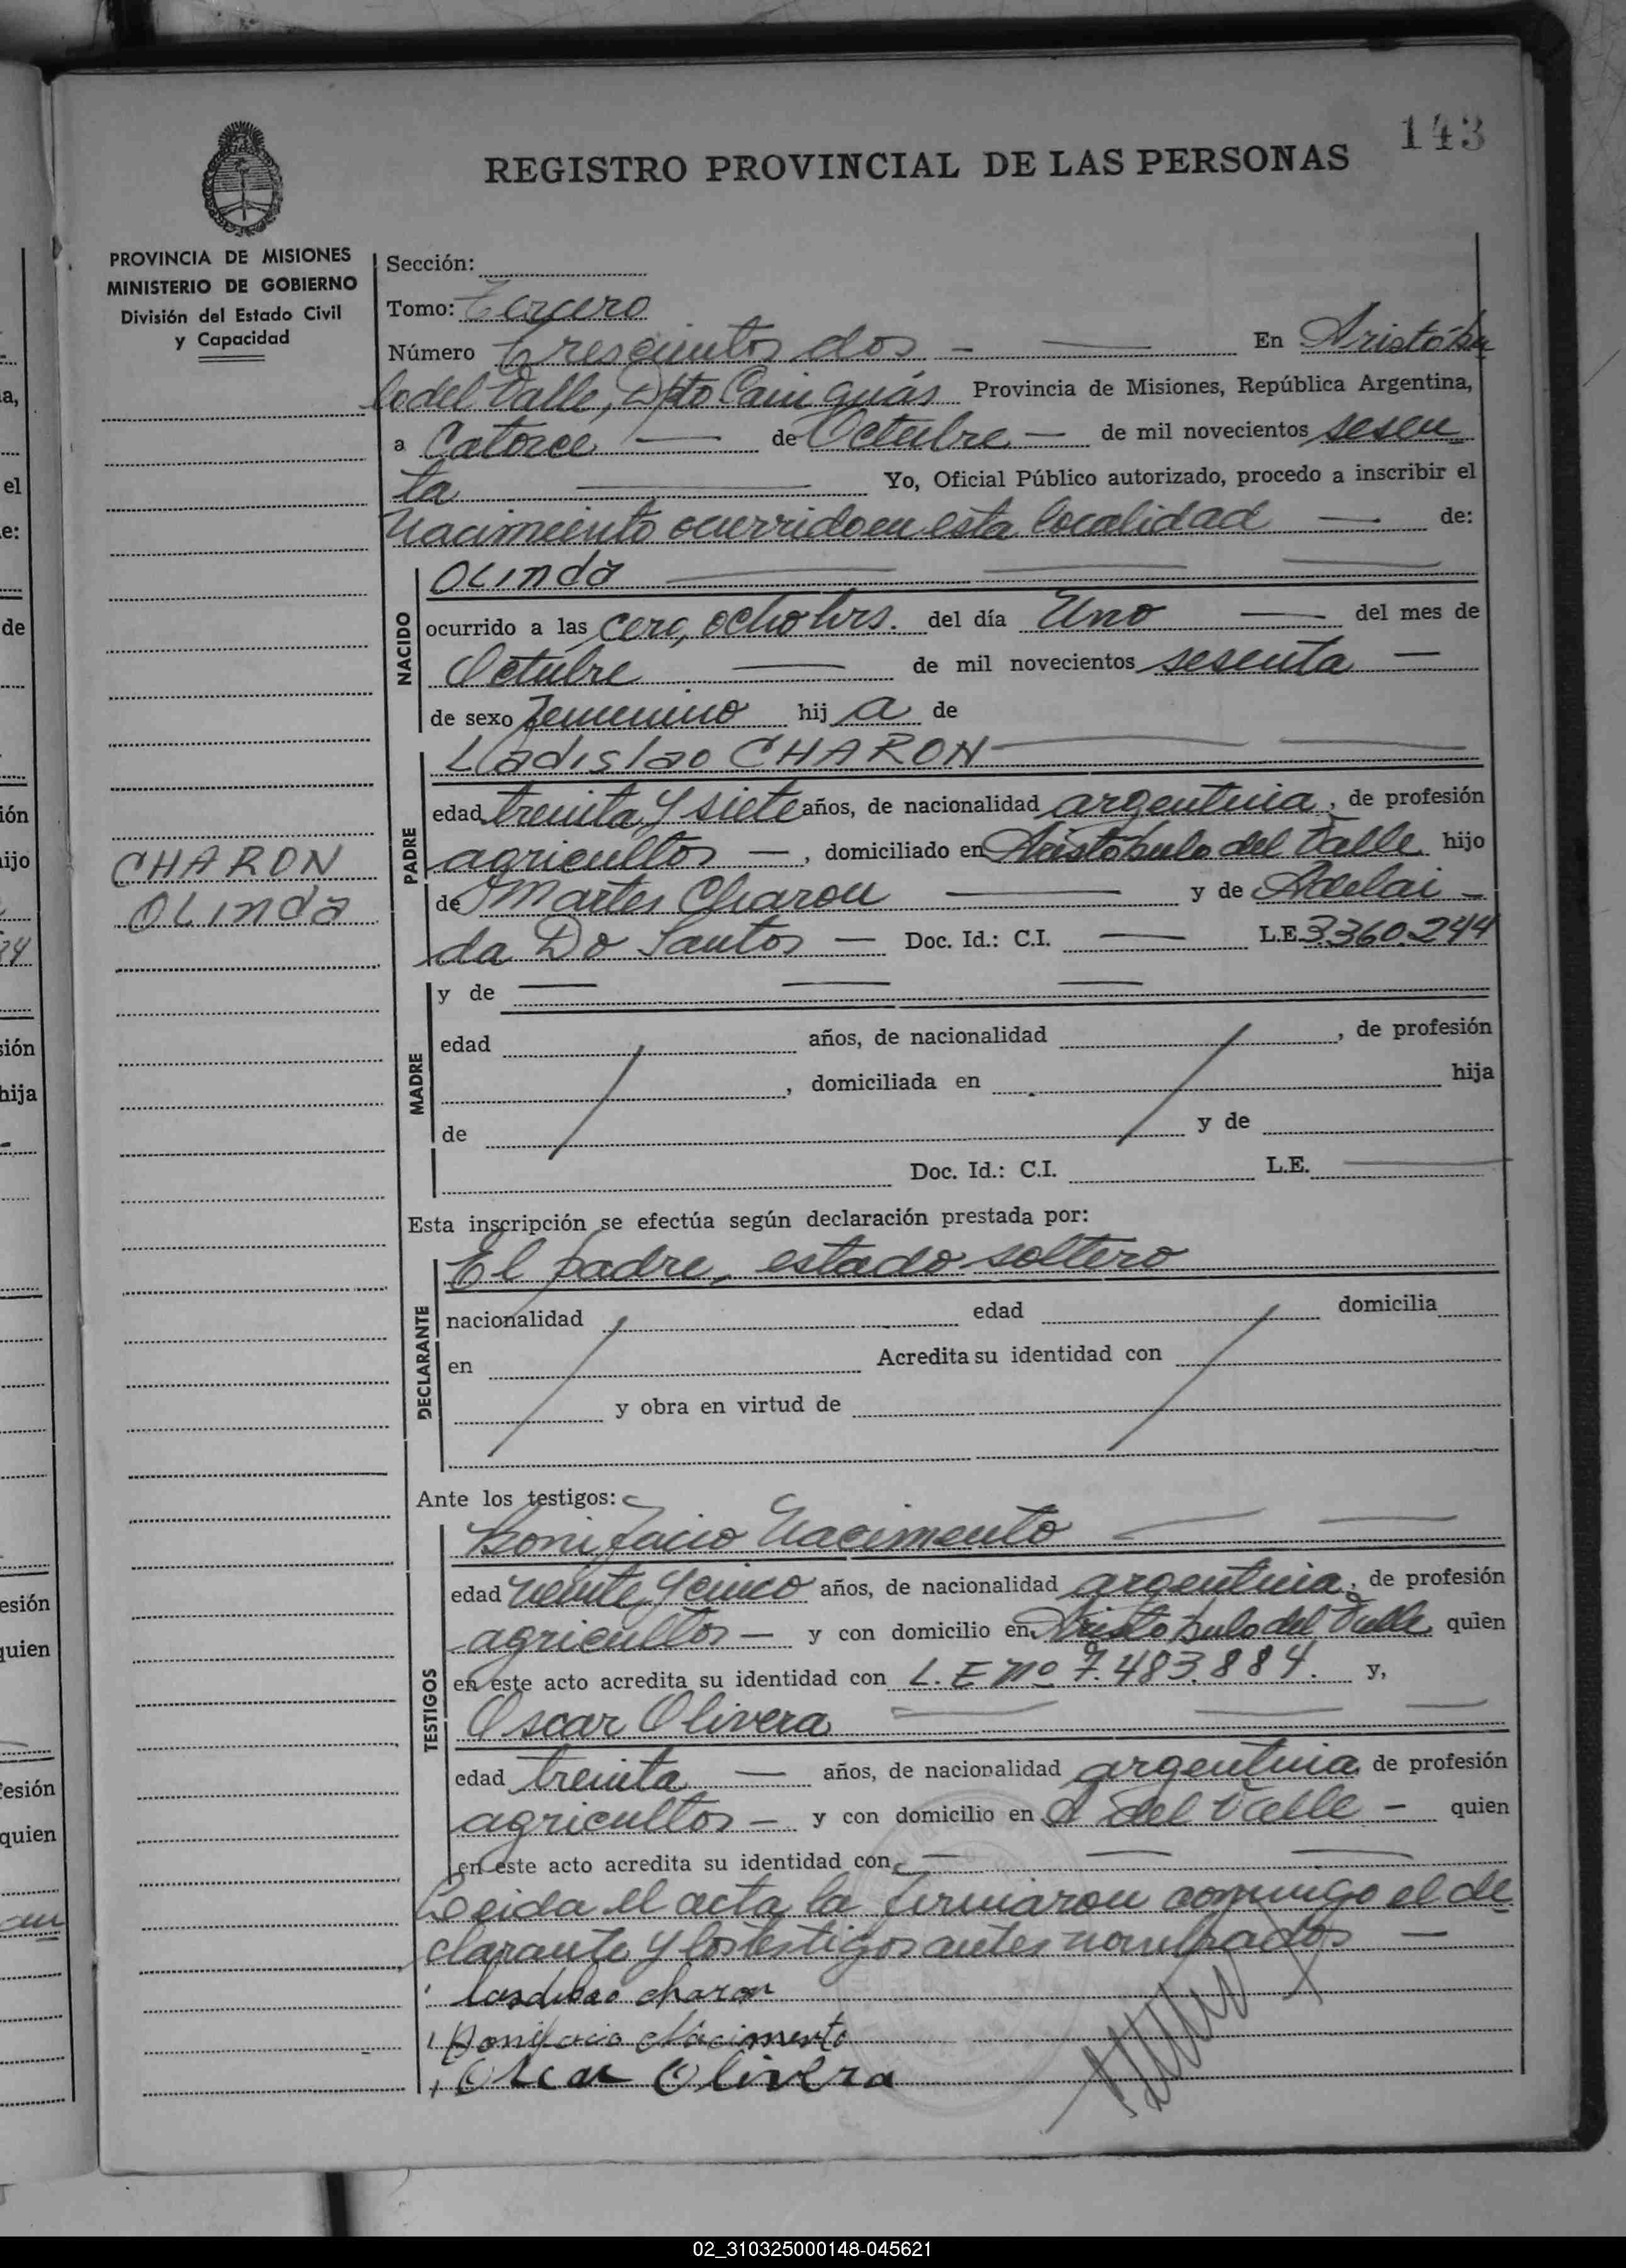 143
REGISTRO PROVINCIAL DE LAS PERSONAS
PROVINCIA DE MISIONES
MINISTERIO DE GOBIERNO
División del Estado Civil
y Capacidad
CHARON
OLINDA
Sección:
Tomo: Tercero
Número Trescientos dos - — En Aristóbu
lo del Valle, Dpto Cainguás Provincia de Misiones, República Argentina,
a Catorce — de Octubre — de mil novecientos sesen
ta — Yo, Oficial Público autorizado, procedo a inscribir el
Nacimiento ocurrido en esta localidad — de:
NACIDO
OLINDA — — —
ocurrido a las cero, ocho hrs. del día Uno — del mes de
Octubre — de mil novecientos sesenta —
de sexo femenino hij a de
PADRE
Ladislao CHARON — —
edad treinta y siete años, de nacionalidad argentina, de profesión
agricultor —, domiciliado en Aristóbulo del Valle hijo
de Martes Charon — y de Adelai -
da Do Santos — Doc. Id.: C.I. — L.E. 3360.244
MADRE
y de — — —
edad años, de nacionalidad , de profesión
, domiciliada en hija
de y de
Doc. Id.: C.I. L.E. —
Esta inscripción se efectúa según declaración prestada por:
DECLARANTE
El padre, estado soltero
nacionalidad edad domicilia
en Acredita su identidad con
y obra en virtud de
Ante los testigos:
TESTIGOS
Bonifacio Nacimento — —
edad veinte y cinco años, de nacionalidad argentina, de profesión
agricultor — y con domicilio en Aristobulo del Valle quien
en este acto acredita su identidad con L. E Nº 7.483.884. y,
Oscar Olivera — — —
edad treinta — años, de nacionalidad argentina de profesión
agricultor — y con domicilio en A del Valle - quien
en este acto acredita su identidad con — — —
Leida el acta la firmaron conmigo el de
clarante y los testigos antes nombrados —
charon
Bonifacio Nacimento
Oscar Olivera
a,
el
e:
de
ión
ijo
sión
hija
esión
quien
esión
quien
02_310325000148-045621